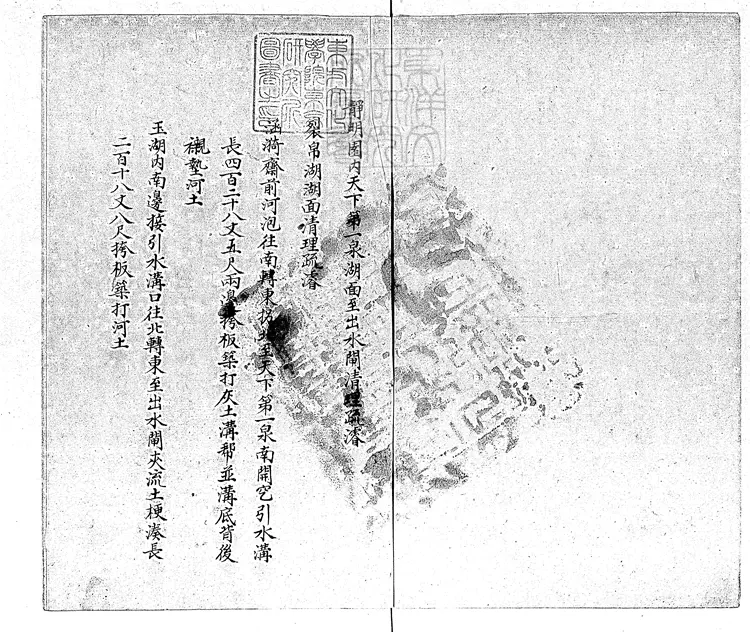 靜明園內天下第一泉湖面至出水閘清理疏濬
裂帛湖湖面清理疏濬
涵漪齋前河泡往南轉東投北至天下第一泉南開空引水溝
長四百二十八丈五尺兩邊挎板築打灰土溝幫並溝底背後
襯墊河土
玉湖內南邊接引水溝口往北轉東至出水閘夾流土梗湊長
二百十八丈八尺挎板築打河土
東方文化
學院京都
研究所
圖書之印